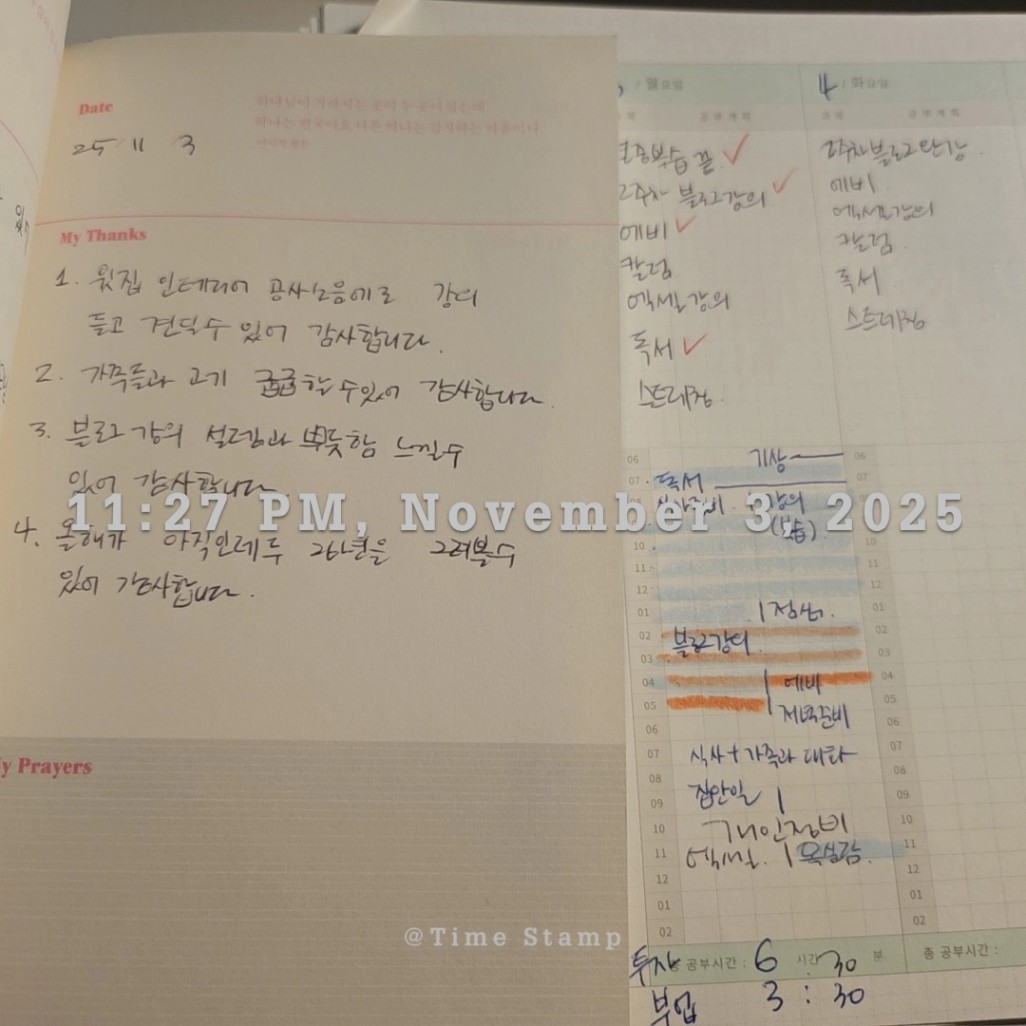 Date
하나님이 거하시는 곳이 두 곳이 있는데
하나는 천국이요 다른 하나는 감사하는 마음이다
25 11 3
My Thanks
1. 윗집 인테리어 공사소음에도 강의
듣고 견딜수 있어 감사합니다.
2. 가족들과 고기 굽굽할 수 있어 감사합니다.
3. 블로그 강의 설렘과 뿌듯함 느낄수
있어 감사합니다
4. 올해가 아직인데두 26년을 그려볼수
있어 감사합니다.
y Prayers
/ 월요일
공부계획
복습 끝 ✓
2주차 블로그강의 ✓
에비 ✓
칼럼
엑셀강의
독서 ✓
스트레칭.
06 기상 06
07 독서 07
강의
(복습)
10 10
11 11
12 12
01 점심. 01
02 블로그강의 02
03 03
04 에비 04
05 저녁준비 05
06 06
07 식사+가족과 대화 07
08 08
09 집안일 09
10 개인정비 10
11 엑셀. 독실감. 11
12 12
01 01
02 02
투자 총 공부시간 : 6 시간 30 분
부업 3 : 30
4 / 화요일
공부계획
2주차블로그완강.
에비.
엑셀강의
칼럼.
독서.
스트레칭
총 공부시간 :
11:27 PM, November 3, 2025
@Time Stamp